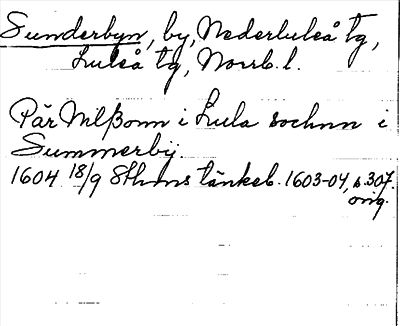 Sunderbyn, by, Nederluleå tg,
Luleå tg, Norrb. l.
Pär Nilßonn i Lula sochnn i
Summerbÿ
1604 18/9 Sthms tänkeb. 1603-04, s. 307.
orig.